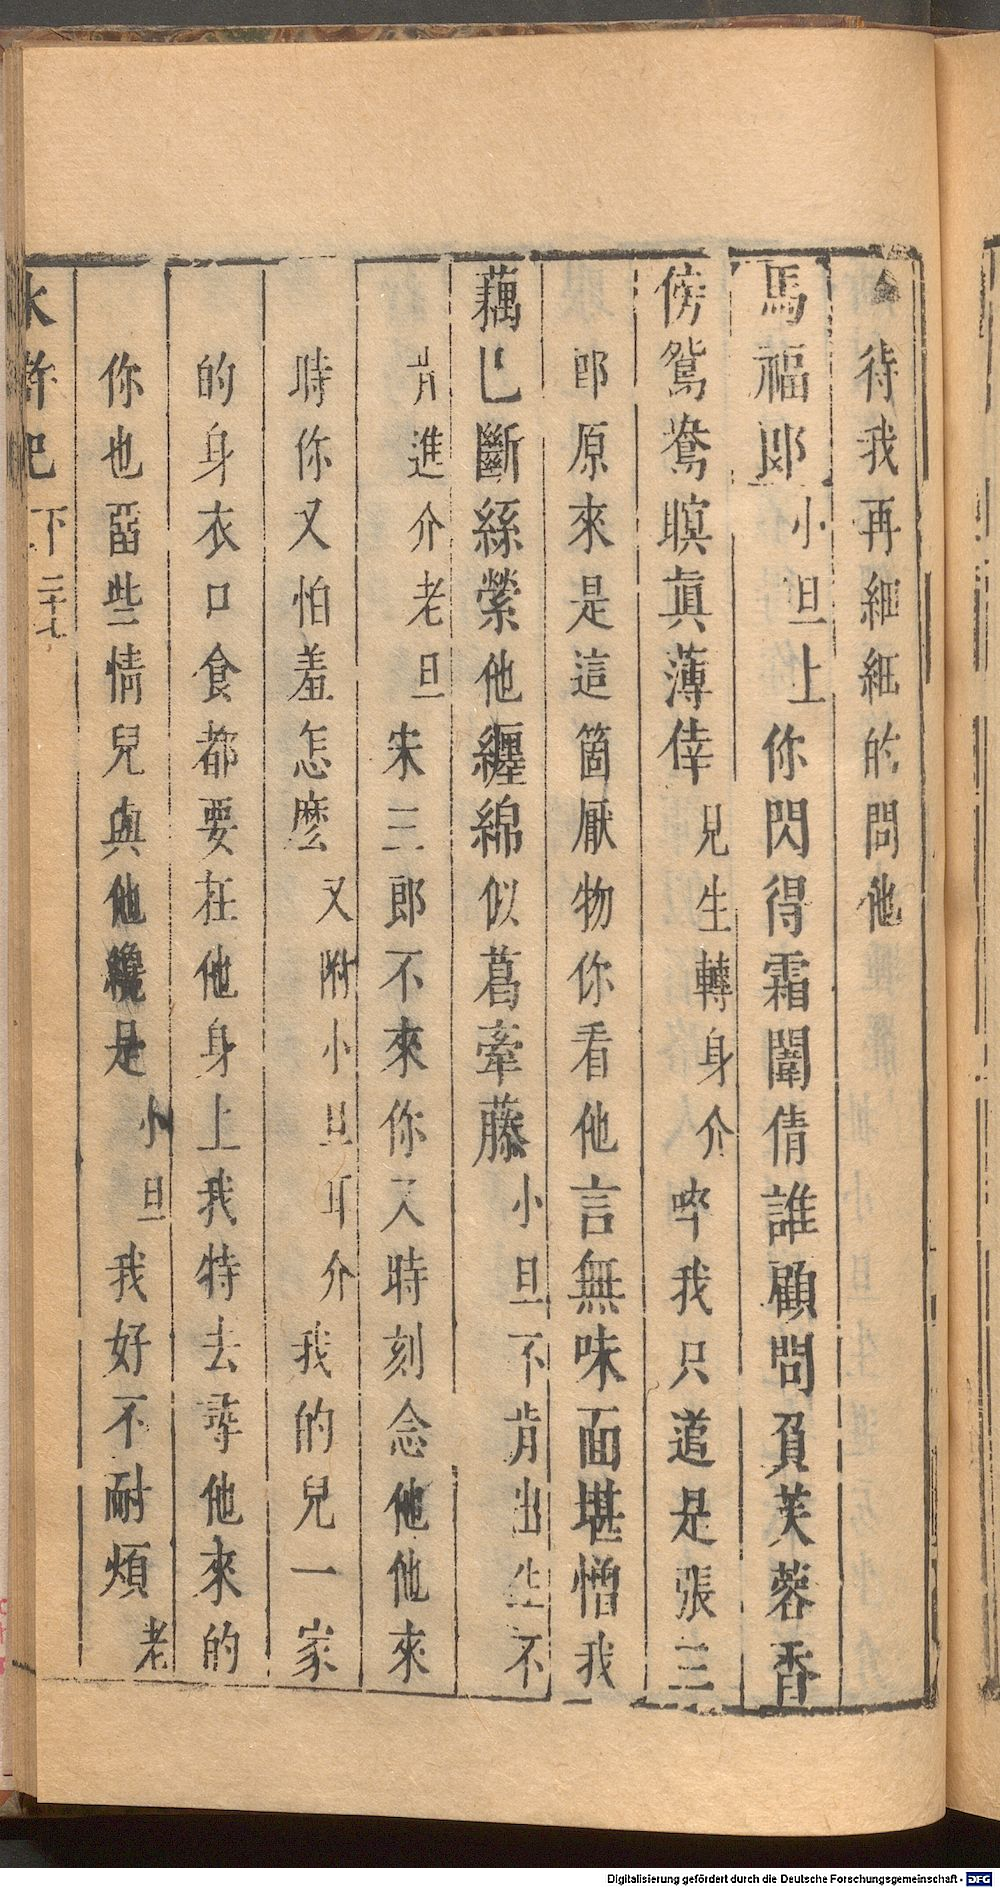 待我再細細的問他
馬福郎小旦上你閃得霜闈倩誰顧問負芙蓉香
傍鴛鴦瞑眞薄倖見生轉身介啐我只道是張三
郎原來是這箇厭物你看他言無味面堪憎我
藕已斷絲縈他纏綿似葛牽藤小旦不肯出生不
肯進介老旦宋三郎不來你又時刻念他他來
時你又怕羞怎麼又附小旦耳介我的兒一家
的身衣口食都要在他身上我特去尋他來的
你也畱些情兒與他纔是小旦我好不耐煩老
水滸記 下 二十七
Digitalisierung gefördert durch die Deutsche Forschungsgemeinschaft - DFG